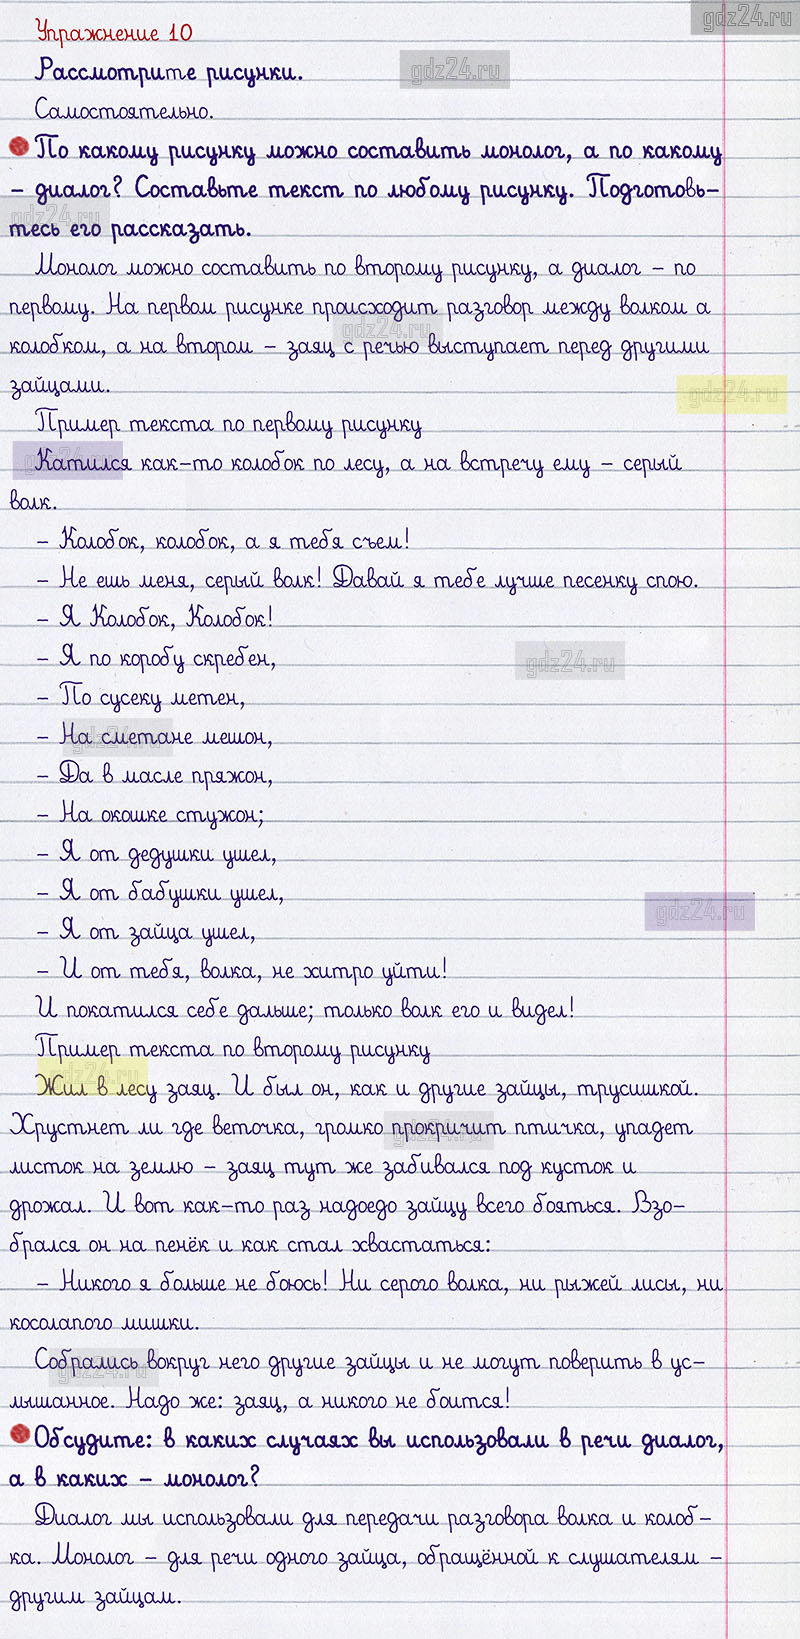 gdz24.ru
Упражнение 10
Рассмотрите рисунки.
gdz24.ru
Самостоятельно.
По какому рисунку можно составить монолог, а по какому
– диалог? Составьте текст по любому рисунку. Подготовь-
gdz24.ru
тесь его рассказать.
Монолог можно составить по второму рисунку, а диалог – по
первому. На первом рисунке происходит разговор между волком а
gdz24.ru
колобком, а на втором – заяц с речью выступает перед другими
зайцами.
gdz24.ru
Пример текста по первому рисунку
gdz24.ru
Катился как-то колобок по лесу, а на встречу ему – серый
волк.
– Колобок, колобок, а я тебя съем!
– Не ешь меня, серый волк! Давай я тебе лучше песенку спою.
– Я Колобок, Колобок!
– Я по коробу скребен,
gdz24.ru
– По сусеку метен,
– На сметане мешон,
gdz24.ru
– Да в масле пряжон,
– На окошке стужон;
– Я от дедушки ушел,
– Я от бабушки ушел,
gdz24.ru
– Я от зайца ушел,
– И от тебя, волка, не хитро уйти!
И покатился себе дальше; только волк его и видел!
Пример текста по второму рисунку
gdz24.ru
Жил в лесу заяц. И был он, как и другие зайцы, трусишкой.
Хрустнет ли где веточка, громко прокричит птичка, упадет
gdz24.ru
листок на землю – заяц тут же забивался под кусток и
дрожал. И вот как-то раз надоедо зайцу всего бояться. Взо-
брался он на пенёк и как стал хвастаться:
– Никого я больше не боюсь! Ни серого волка, ни рыжей лисы, ни
косолапого мишки.
Собрались вокруг него другие зайцы и не могут поверить в ус-
gdz24.ru
лышанное. Надо же: заяц, а никого не боится!
Обсудите: в каких случаях вы использовали в речи диалог,
а в каких – монолог?
Диалог мы использовали для передачи разговора волка и колоб-
ка. Монолог – для речи одного зайца, обращённой к слушателям –
другим зайцам.